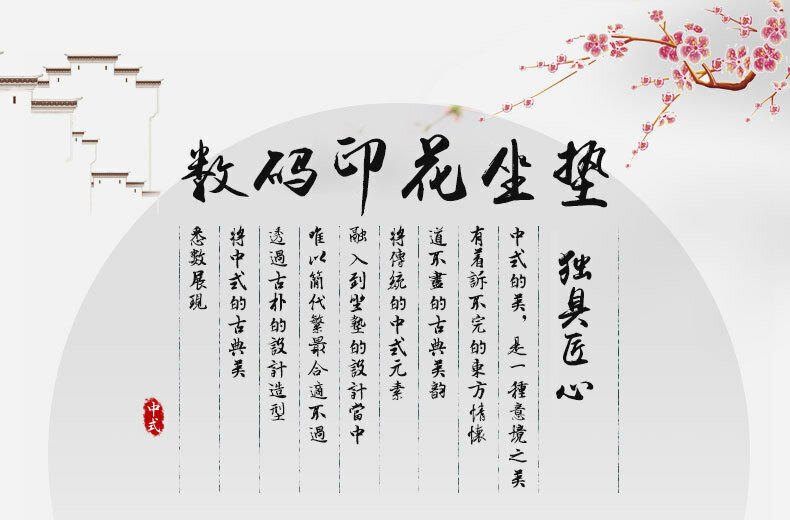 数码印花坐垫
独具匠心
中式的美，是一種意境之美
有着訴不完的東方情懷
道不盡的古典美韵
將傳統的中式元素
融入到坐墊的設計當中
唯以簡代繁最合適不過
透過古朴的設計造型
將中式的古典美
悉數展現
中式